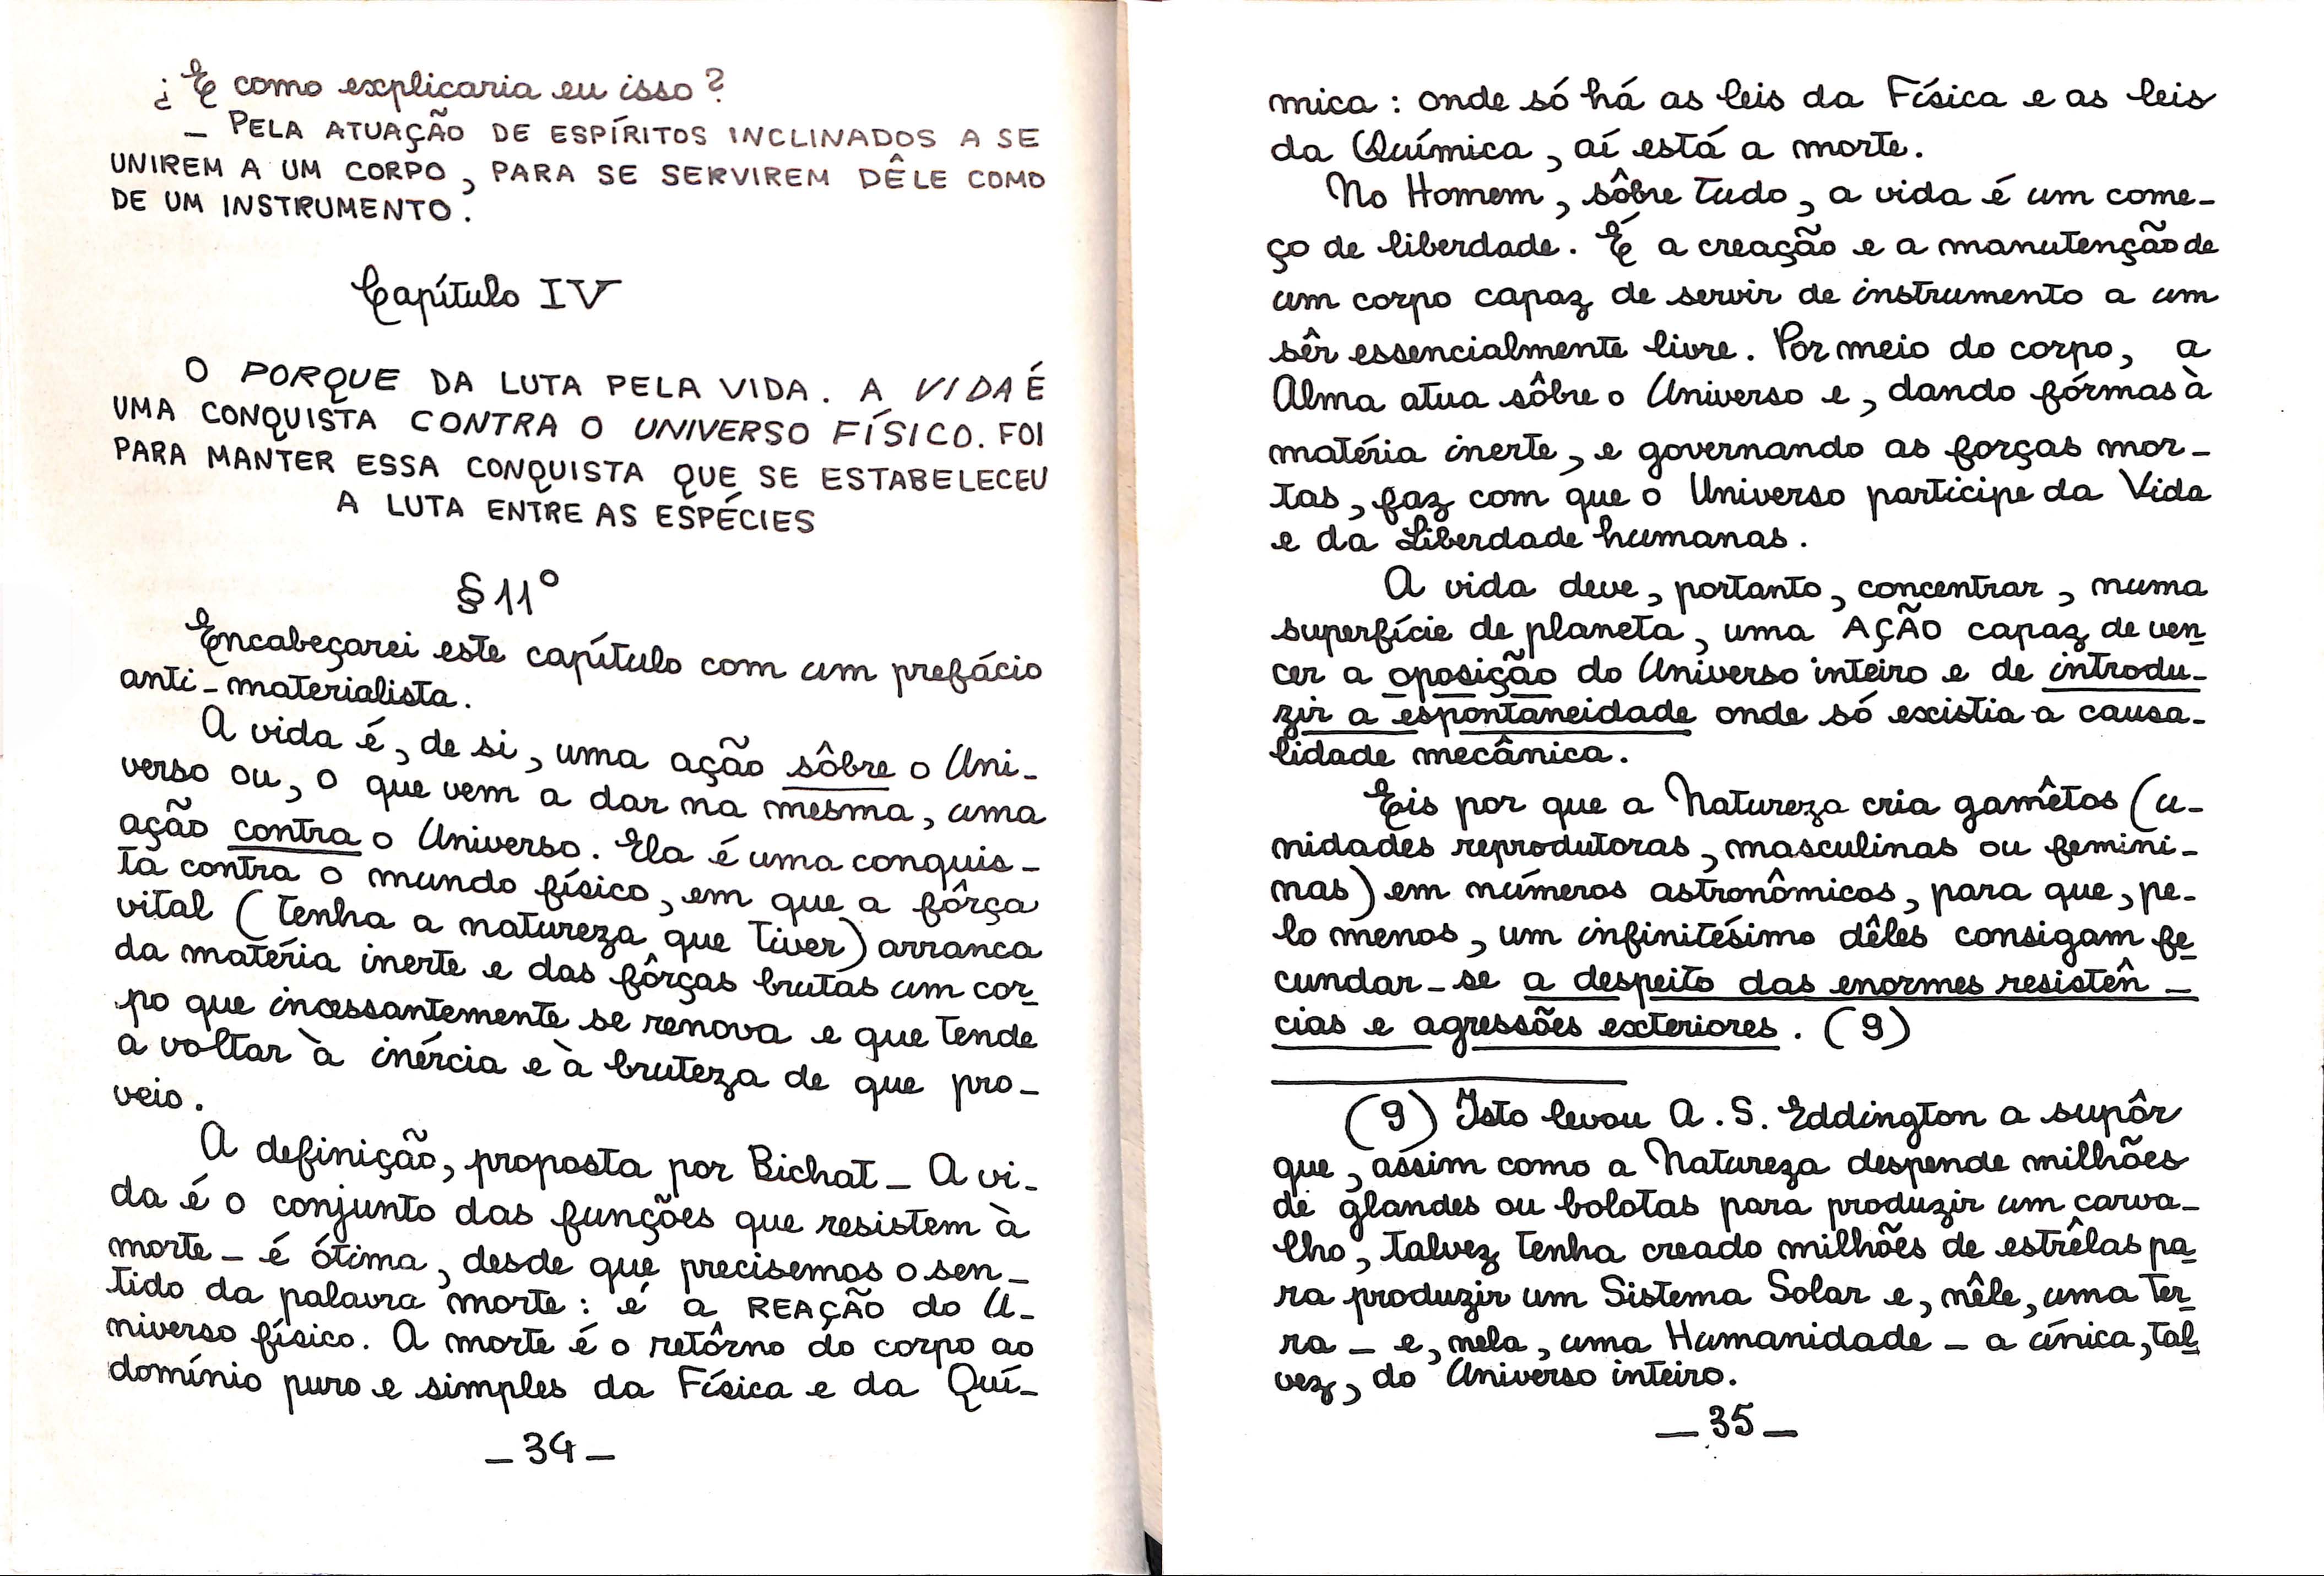 ¿ E como explicaria eu isso?
— PELA ATUAÇÃO DE ESPÍRITOS INCLINADOS A SE
UNIREM A UM CORPO, PARA SE SERVIREM DÊLE COMO
DE UM INSTRUMENTO.
Capítulo IV
O PORQUE DA LUTA PELA VIDA. A VIDA É
UMA CONQUISTA CONTRA O UNIVERSO FÍSICO. FOI
PARA MANTER ESSA CONQUISTA QUE SE ESTABELECEU
A LUTA ENTRE AS ESPÉCIES
§ 11º
Encabeçarei este capítulo com um prefácio
anti-materialista.
A vida é, de si, uma ação sôbre o Uni-
verso ou, o que vem a dar na mesma, uma
ação contra o Universo. Ela é uma conquis-
ta contra o mundo físico, em que a fôrça
vital (tenha a natureza que tiver) arranca
da matéria inerte e das fôrças brutas um cor-
po que incessantemente se renova e que tende
a voltar à inércia e à bruteza de que pro-
veio.
A definição, proposta por Bichat — A vi-
da é o conjunto das funções que resistem à
morte — é ótima, desde que precisemos o sen-
tido da palavra morte: é a REAÇÃO do U-
niverso físico. A morte é o retôrno do corpo ao
domínio puro e simples da Física e da Quí-
— 34 —
mica: onde só há as leis da Física e as leis
da Química, aí está a morte.
No Homem, sôbre tudo, a vida é um come-
ço de liberdade. É a creação e a manutenção de
um corpo capaz de servir de instrumento a um
sêr essencialmente livre. Por meio do corpo, a
Alma atua sôbre o Universo e, dando fórmas à
matéria inerte, e governando as forças mor-
tas, faz com que o Universo participe da Vida
e da Liberdade humanas.
A vida deve, portanto, concentrar, numa
superfície de planeta, uma AÇÃO capaz de ven-
cer a oposição do Universo inteiro e de introdu-
zir a espontaneidade onde só existia a causa-
lidade mecânica.
Eis por que a Natureza cria gamêtos (u-
nidades reprodutoras, masculinas ou femini-
nas) em números astronômicos, para que, pe-
lo menos, um infinitésimo dêles consigam fe-
cundar-se a despeito das enormes resistên-
cias e agressões exteriores. (9)
(9) Isto levou A. S. Eddington a supôr
que, assim como a Natureza despende milhões
de glandes ou bolotas para produzir um carva-
lho, talvez tenha creado milhões de estrêlas pa-
ra produzir um Sistema Solar e, nêle, uma Ter-
ra — e, nela, uma Humanidade — a única, tal-
vez, do Universo inteiro.
— 35 —